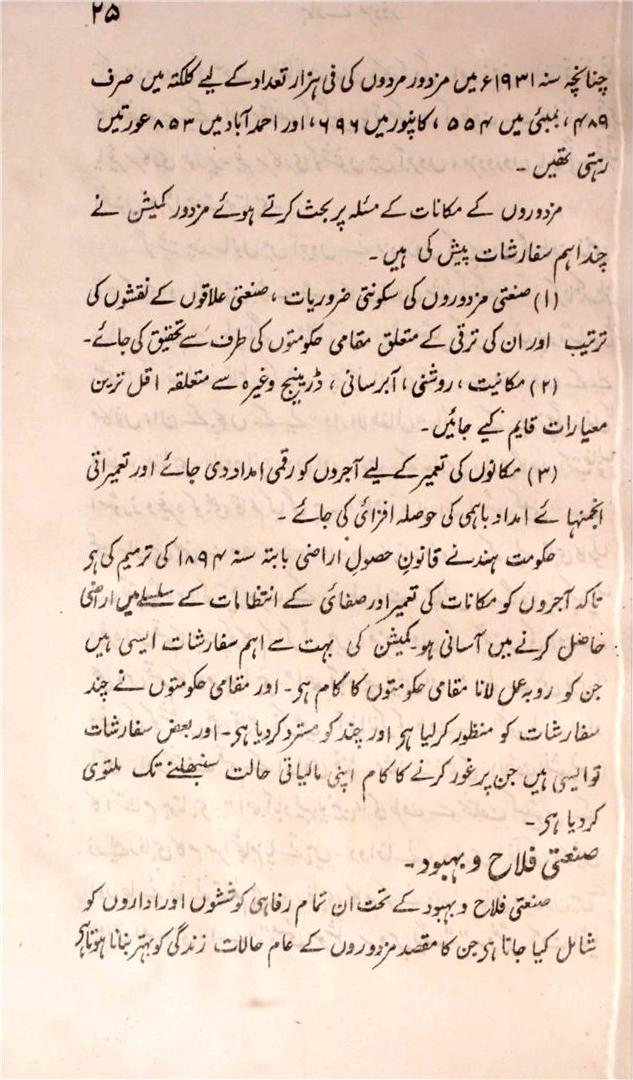 ۲۵
چنانچہ سنہ ۱۹۳۱ء میں مزدور مردوں کی فی ہزار تعداد کے لیے کلکتہ میں صرف
۴۸۹، بمبئی میں ۵۵۴، کانپور میں ۶۹۶، اور احمد آباد میں ۸۵۳ عورتیں
رہتی تھیں ۔
مزدوروں کے مکانات کے مسئلہ پر بحث کرتے ہوئے مزدور کمیشن نے
چند اہم سفارشات پیش کی ہیں ۔
(۱) صنعتی مزدوروں کی سکونتی ضروریات ، صنعتی علاقوں کے نقشوں کی
ترتیب اور ان کی ترقی کے متعلق مقامی حکومتوں کی طرف سے تحقیق کی جائے ۔
(۲) مکانیت ، روشنی ، آبرسانی ، ڈرینیج وغیرہ سے متعلقہ اقل ترین
معیارات قایم کیے جائیں ۔
(۳) مکانوں کی تعمیر کے لیے آجروں کو رقمی امداد دی جائے اور تعمیراتی
انجمنہائے امداد باہمی کی حوصلہ افزائی کی جائے ۔
حکومت ہند نے قانونِ حصولِ اراضی بابتہ سنہ ۱۸۹۴ کی ترمیم کی ہی
تاکہ آجروں کو مکانات کی تعمیر اور صفائی کے انتظامات کے سلسلے میں اراضی
حاصل کرنے میں آسانی ہو ۔ کمیشن کی بہت سے اہم سفارشات ایسی ہیں
جن کو روبہ عمل لانا مقامی حکومتوں کا کام ہی ۔ اور مقامی حکومتوں نے چند
سفارشات کو منظور کرلیا ہی اور چند کو مسترد کردیا ہی ۔ اور بعض سفارشات
تو ایسی ہیں جن پر غور کرنے کا کام اپنی مالیاتی حالت سنبھلنے تک ملتوی
کردیا ہی ۔
صنعتی فلاح و بہبود ۔
صنعتی فلاح و بہبود کے تحت ان تمام رفاہی کوششوں اور اداروں کو
شامل کیا جاتا ہی جن کا مقصد مزدوروں کے عام حالات زندگی کو بہتر بنانا ہوتا ہی